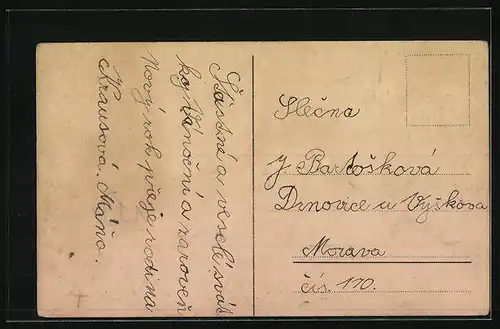 Šťastné a veselé svát
ky Vánoční a zaroveň
Nový rok přeje rodina
Krausová. Máňa.
Slečna
J. Bartošková
Drnovice u Vyškova
Morava
čís. 170.